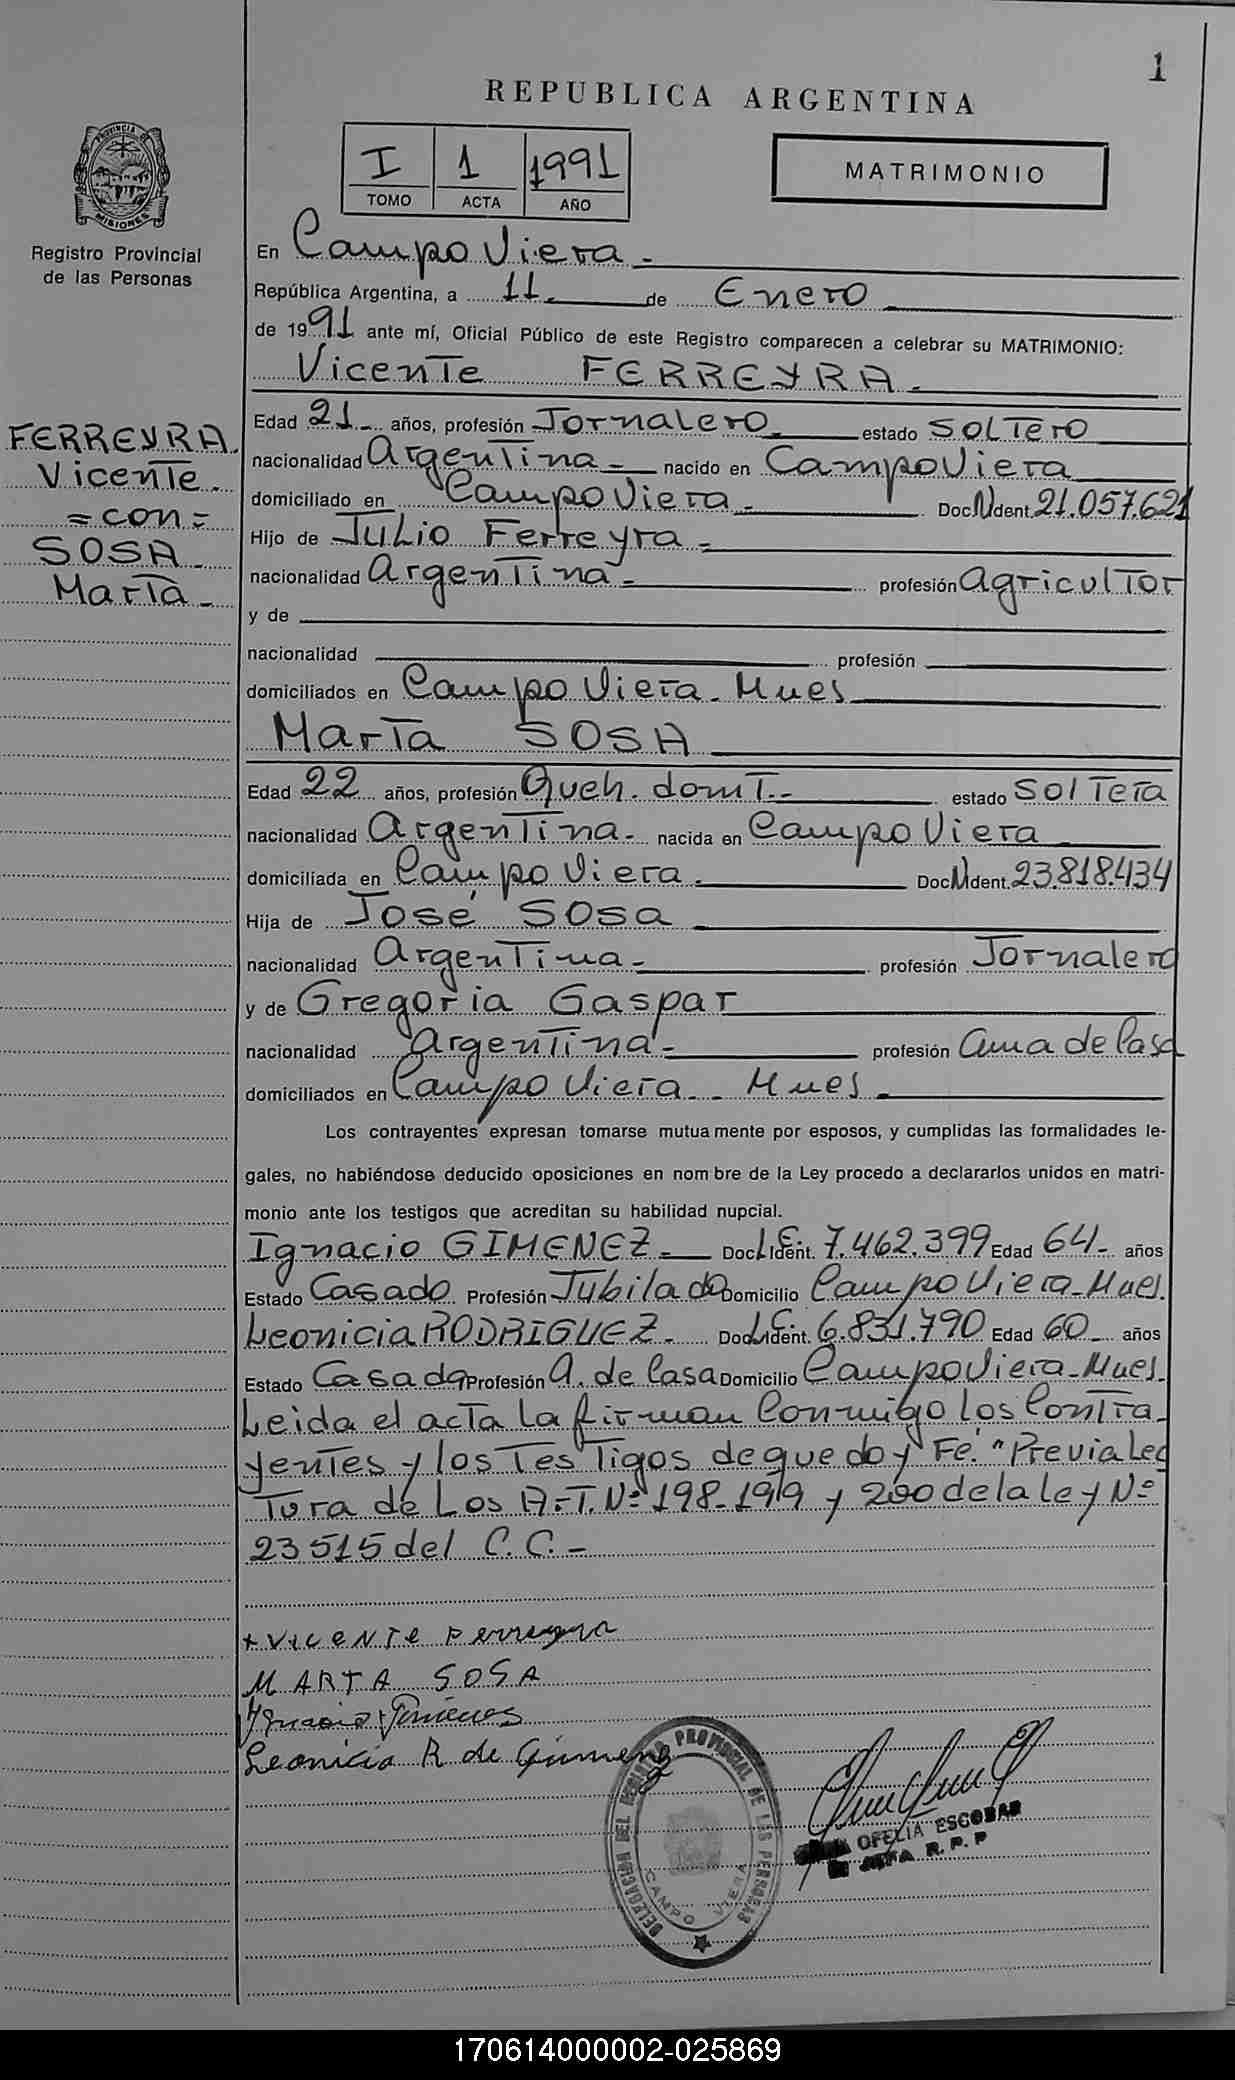 1
REPUBLICA ARGENTINA
PROVINCIA DE
MISIONES
Registro Provincial
de las Personas
I 1 1991
TOMO ACTA AÑO
MATRIMONIO
En Campo Viera.-
República Argentina, a 11. de Enero
de 1991 ante mí, Oficial Público de este Registro comparecen a celebrar su MATRIMONIO:
Vicente FERREYRA.-
FERREYRA.
Vicente.
=con=
SOSA.
Marta.-
Edad 21.- años, profesión Jornalero estado Soltero
nacionalidad Argentina.- nacido en Campo Viera
domiciliado en Campo Viera.- Doc N Ident. 21.057.621
Hijo de Julio Ferreyra.-
nacionalidad Argentina.- profesión Agricultor
y de
nacionalidad profesión
domiciliados en Campo Viera. Mnes
Marta SOSA
Edad 22 años, profesión Queh. domt.- estado Soltera
nacionalidad Argentina.- nacida en Campo Viera
domiciliada en Campo Viera. Doc N Ident. 23.818.434
Hija de José Sosa
nacionalidad Argentina.- profesión Jornalero
y de Gregoria Gaspar
nacionalidad Argentina.- profesión Ama de Casa
domiciliados en Campo Viera.- Mnes.-
Los contrayentes expresan tomarse mutuamente por esposos, y cumplidas las formalidades le-
gales, no habiéndose deducido oposiciones en nombre de la Ley procedo a declararlos unidos en matri-
monio ante los testigos que acreditan su habilidad nupcial.
Ignacio GIMENEZ.- Doc L.E. Ident. 7.462.399 Edad 64.- años
Estado Casado Profesión Jubilado Domicilio Campo Viera. Mnes.
Leonicia RODRIGUEZ.- Doc L.C. Ident. 6.831.790 Edad 60.- años
Estado Casada Profesión A. de Casa Domicilio Campo Viera. Mnes.
Leida el acta La firman Conmigo los Contra-
yentes y los Testigos de que doy Fé. "Previa Lec
Tura de Los A.T. Nº 198-199 y 200 de la Ley Nº
23515 del C.C.-
+ VICENTE Ferreyra
MARTA SOSA
Ygnacio Gimenes
Leonicia R de Gimenez
DELEGACION DEL REGISTRO PROVINCIAL DE LAS PERSONAS
CAMPO VIERA
OFELIA ESCOBAR
JEFA R. P. P
170614000002-025869